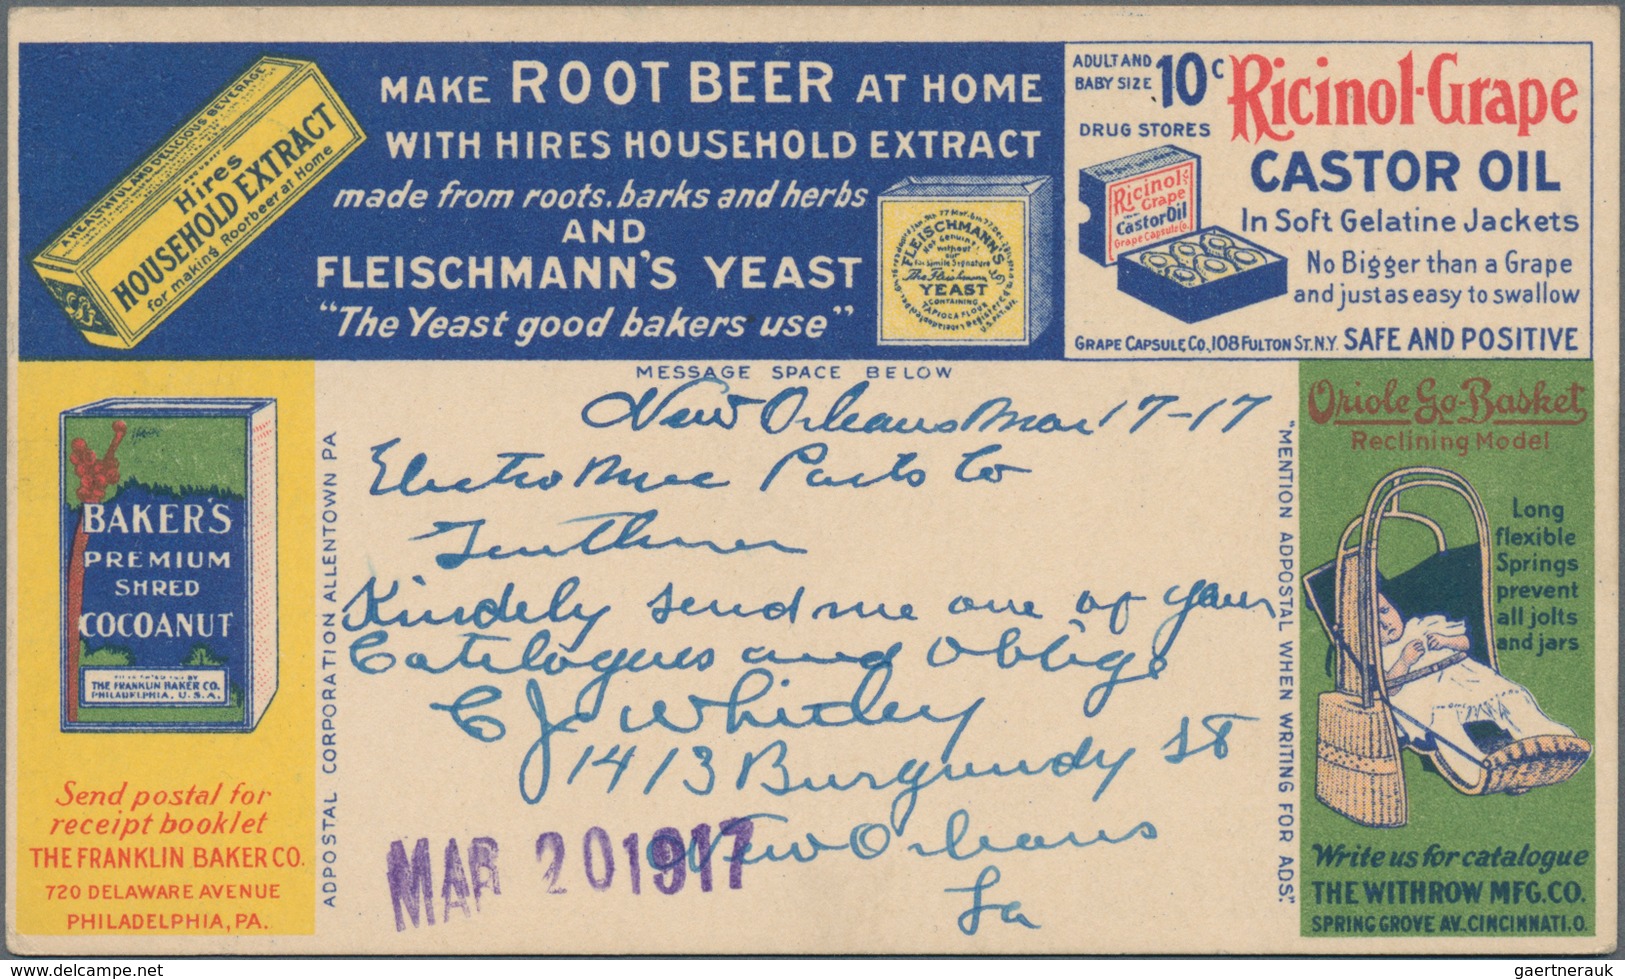 MAKE ROOT BEER AT HOME
WITH HIRES HOUSEHOLD EXTRACT
made from roots, barks and herbs
AND
FLEISCHMANN'S YEAST
"The Yeast good bakers use"
A HEALTHFUL AND DELICIOUS BEVERAGE
Hires
HOUSEHOLD EXTRACT
for making Rootbeer at Home
FLEISCHMANN'S
The Fleischmann Co
YEAST
CONTAINING
TAPIOCA FLOUR
ADULT AND
BABY SIZE 10c
DRUG STORES
Ricinol-Grape
CASTOR OIL
In Soft Gelatine Jackets
No Bigger than a Grape
and just as easy to swallow
GRAPE CAPSULE CO., 108 FULTON ST. N.Y. SAFE AND POSITIVE
Ricinol-
Grape
Castor Oil
Grape Capsule Co.
MESSAGE SPACE BELOW
BAKER'S
PREMIUM
SHRED
COCOANUT
THE FRANKLIN BAKER CO.
PHILADELPHIA, U.S.A.
Send postal for
receipt booklet
THE FRANKLIN BAKER CO.
720 DELAWARE AVENUE
PHILADELPHIA, PA.
ADPOSTAL CORPORATION ALLENTOWN PA
New Orleans Mar 17-17
Electro Parts Co
Kindely send me one of your
Catelogues and oblige
C J Whitley
1413 Burgundy St
New Orleans
La
MAR 20 1917
"MENTION ADPOSTAL WHEN WRITING FOR ADS."
Oriole Go-Basket
Reclining Model
Long
flexible
Springs
prevent
all jolts
and jars
Write us for catalogue
THE WITHROW MFG. CO.
SPRING GROVE AV. CINCINNATI. O.
www.delcampe.net
gaertnerauk